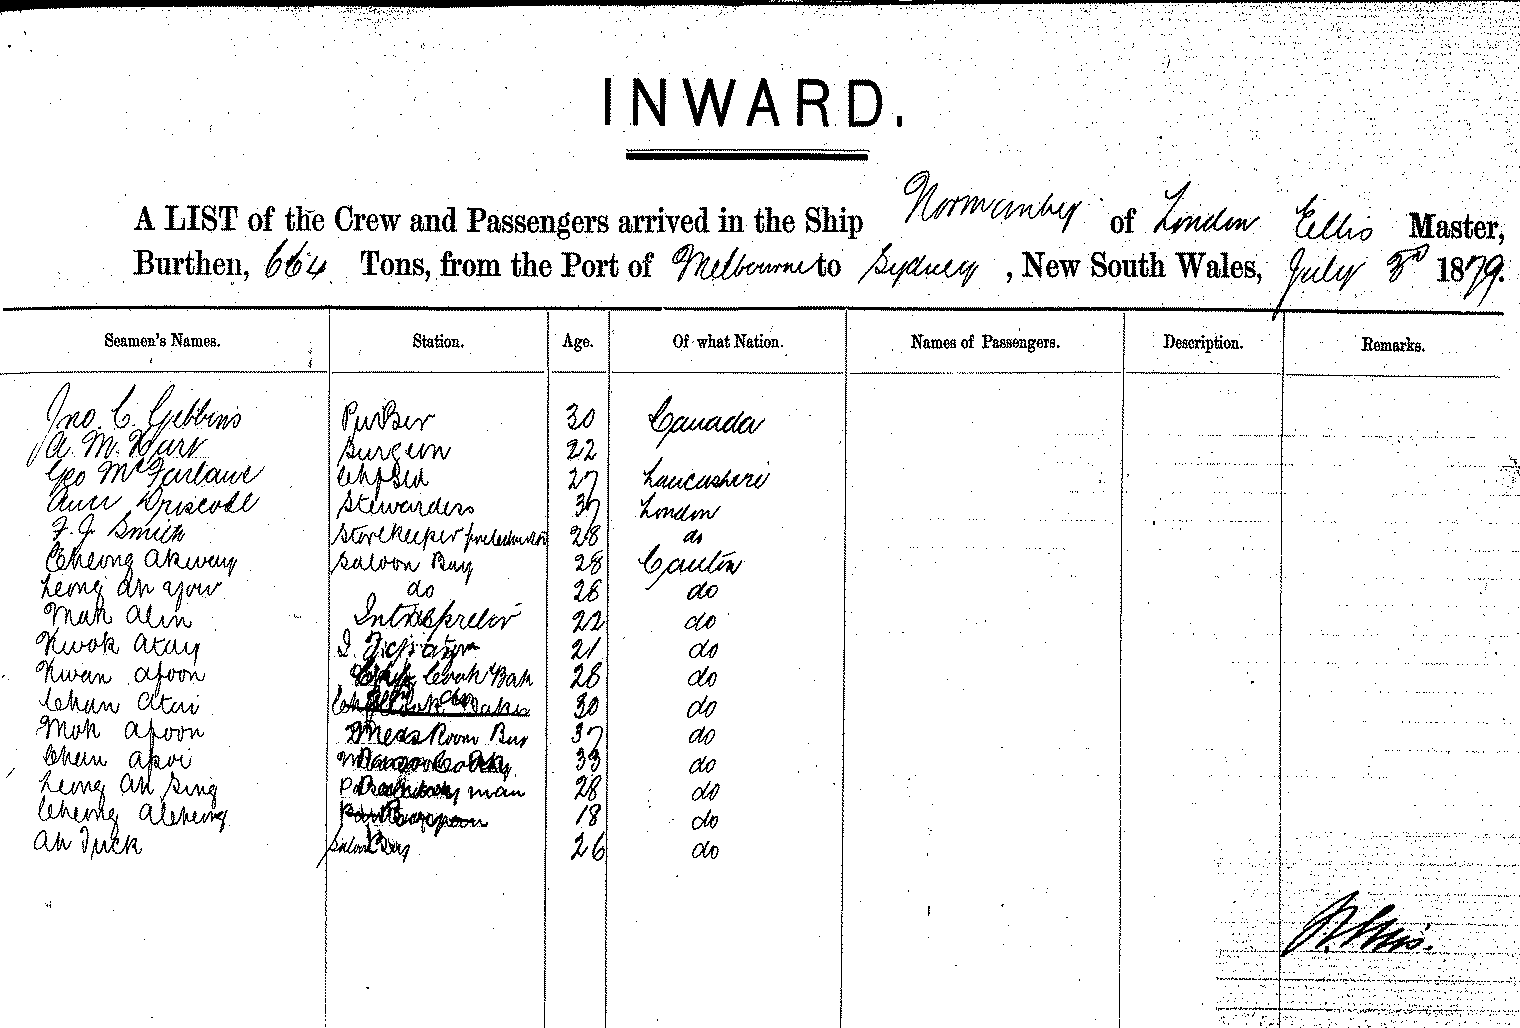 INWARD.
A LIST of the Crew and Passengers arrived in the Ship Normanby of London Ellis Master,
Burthen, 664 Tons, from the Port of Melbourne to Sydney, New South Wales, July 3rd 1879.
Seamen's Names. Station. Age. Of what Nation. Names of Passengers. Description. Remarks.
Jno. C. Gibbins Purser 30 Canada
A. M. Surgeon 22
Geo McFarlane 27 Lancashire
Driscoll Stewardess 37 London
F. J. Smith Storekeeper 28 do
Cheong Akway Saloon Boy 28 Canton
Leong Ah do 28 do
Mak Alin 22 do
Kwok Atay 21 do
Kwan Afoon Cook 28 do
Chan Atai 30 do
Mok Afoon Mess Room Boy 37 do
Chan Apoi 33 do
Leong Ah Sing man 28 do
Cheong Acheong 18 do
Ah Tuck Saloon Boy 26 do
Ellis.